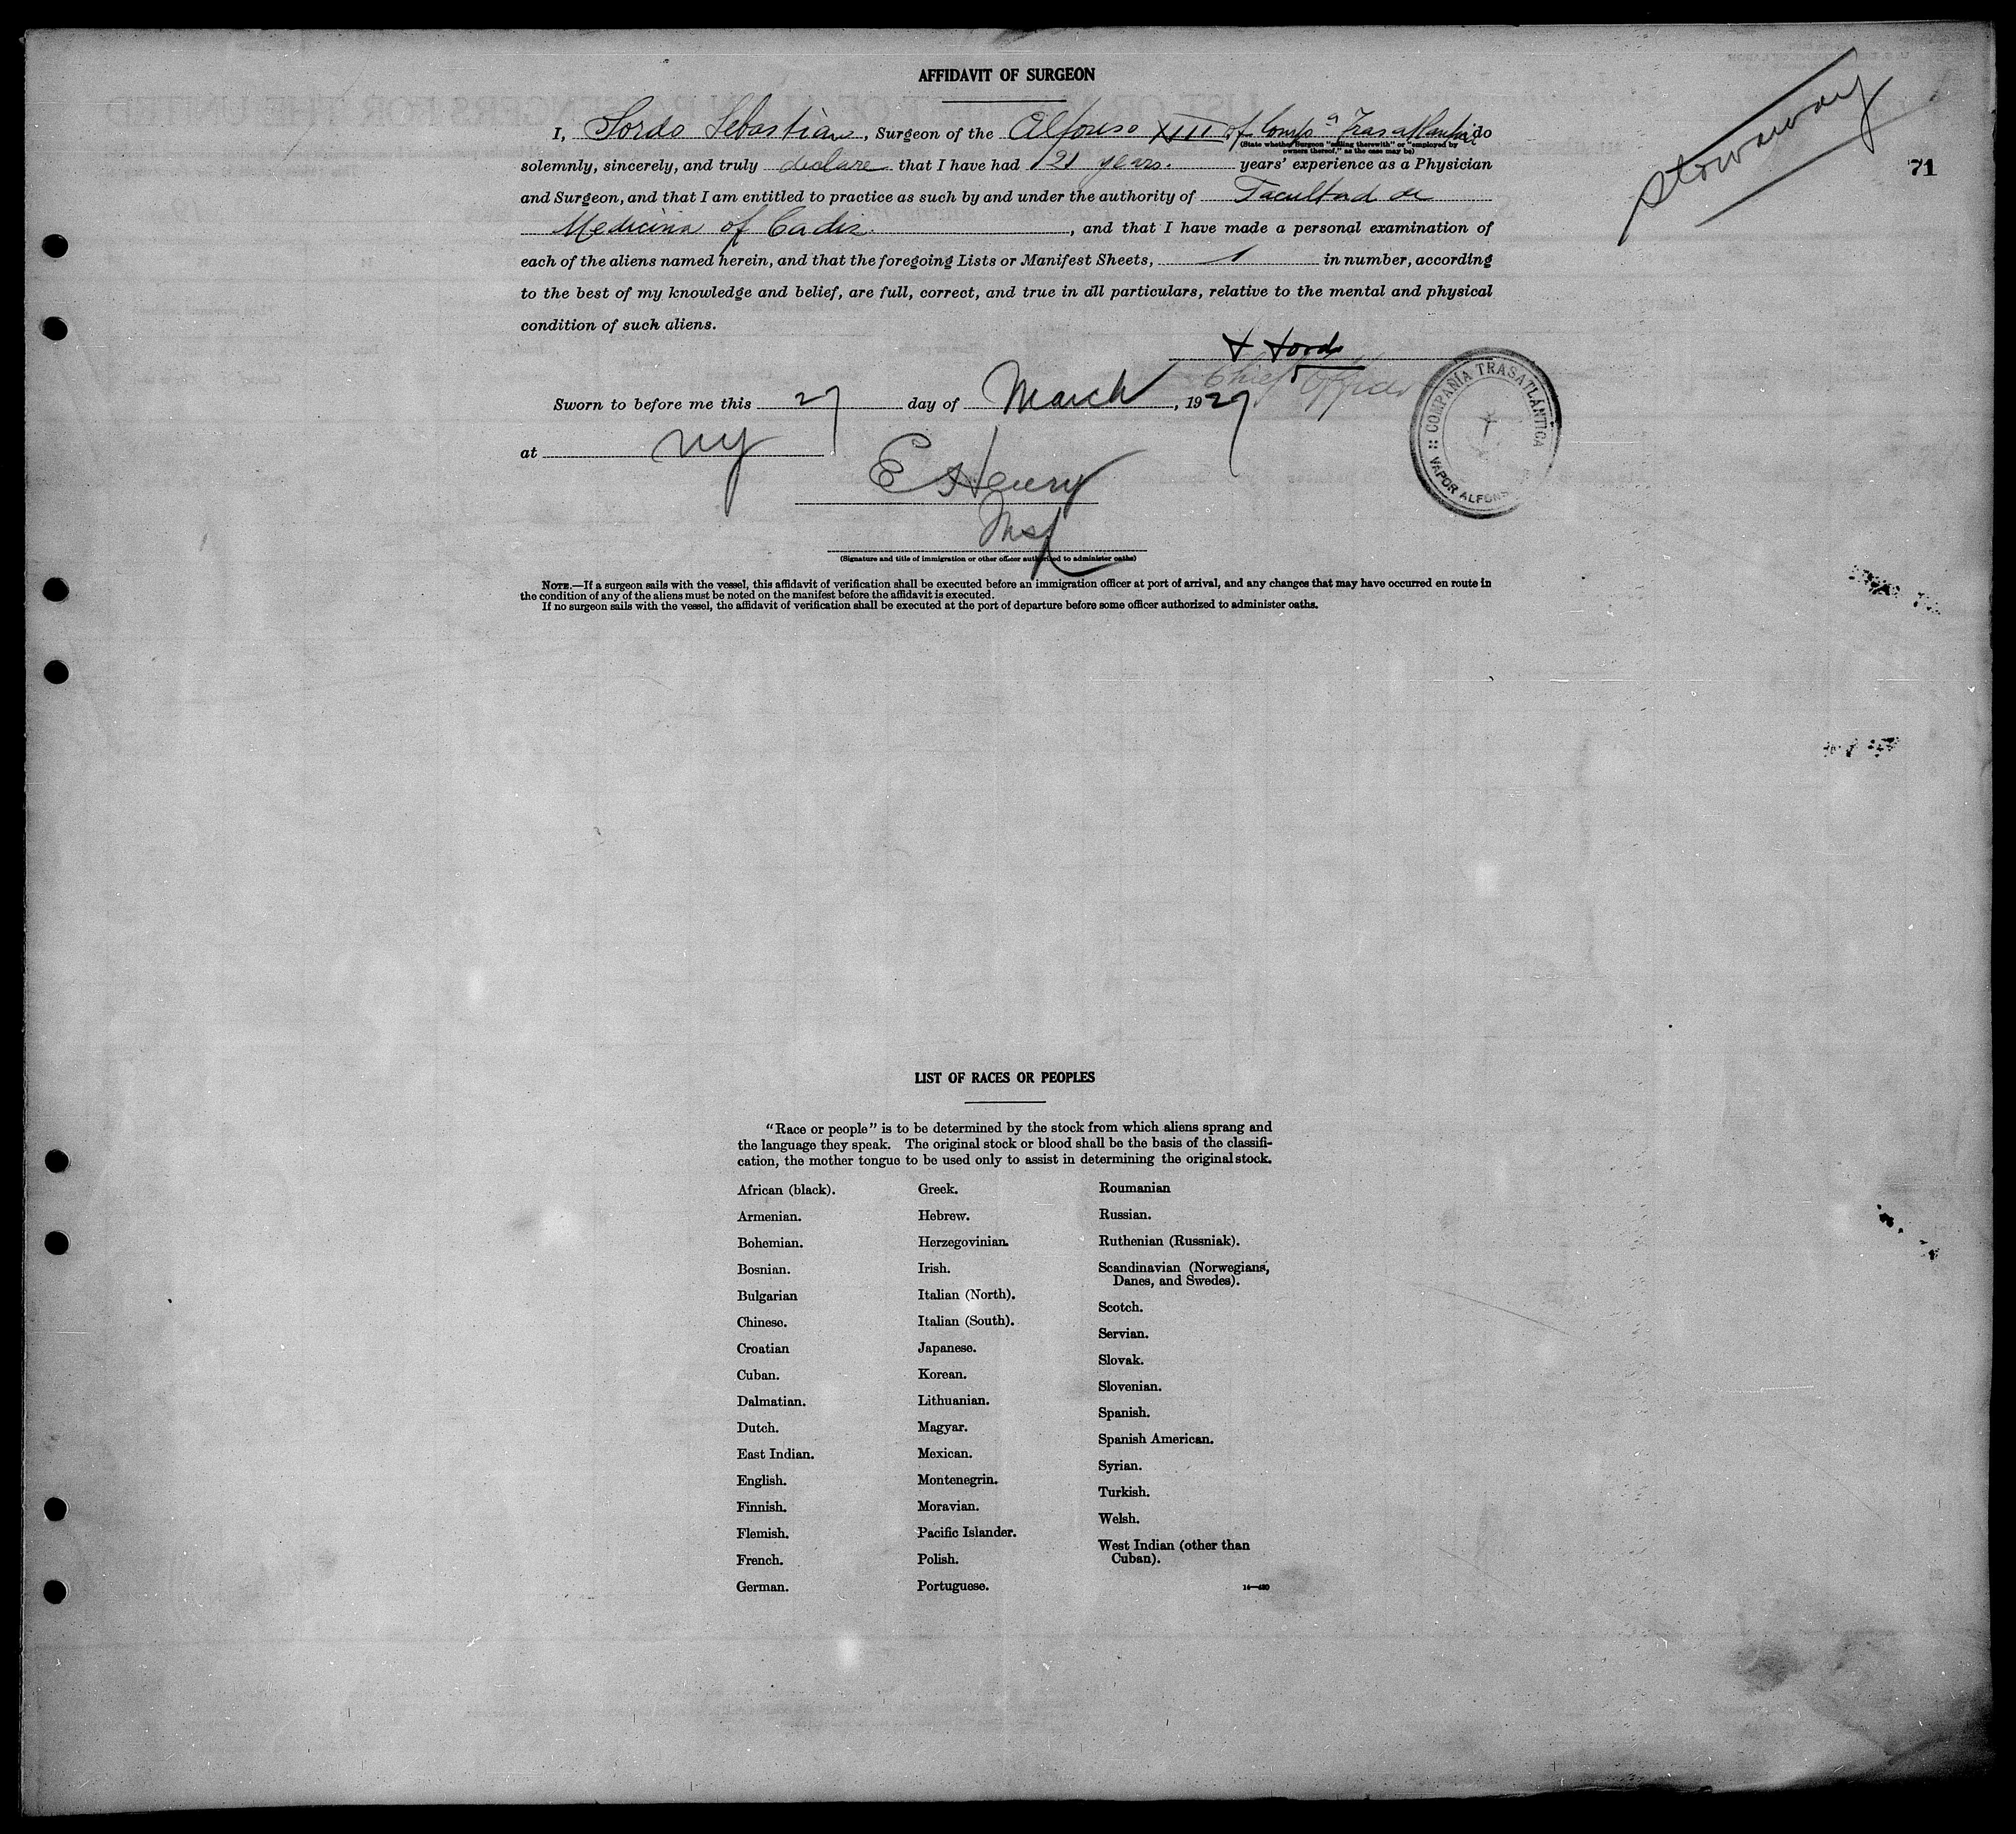 AFFIDAVIT OF SURGEON
Stowaway
71
I, Sordo Sebastian, Surgeon of the Alfonso XIII of Comp a Trasatlantica do
(State whether Surgeon "sailing therewith" or "employed by
owners thereof," as the case may be)
solemnly, sincerely, and truly declare that I have had 21 years. years' experience as a Physician
and Surgeon, and that I am entitled to practice as such by and under the authority of Facultad de
Medicina of Cadiz., and that I have made a personal examination of
each of the aliens named herein, and that the foregoing Lists or Manifest Sheets, 1 in number, according
to the best of my knowledge and belief, are full, correct, and true in all particulars, relative to the mental and physical
condition of such aliens.
Sordo
Chief Officer
Sworn to before me this 27 day of March, 1927
at NY
COMPAÑIA TRASATLÁNTICA
VAPOR ALFONSO
E Henry
Insp
(Signature and title of immigration or other officer authorized to administer oaths)
NOTE.—If a surgeon sails with the vessel, this affidavit of verification shall be executed before an immigration officer at port of arrival, and any changes that may have occurred en route in
the condition of any of the aliens must be noted on the manifest before the affidavit is executed.
If no surgeon sails with the vessel, the affidavit of verification shall be executed at the port of departure before some officer authorized to administer oaths.
LIST OF RACES OR PEOPLES
"Race or people" is to be determined by the stock from which aliens sprang and
the language they speak. The original stock or blood shall be the basis of the classifi-
cation, the mother tongue to be used only to assist in determining the original stock.
African (black).
Armenian.
Bohemian.
Bosnian.
Bulgarian
Chinese.
Croatian
Cuban.
Dalmatian.
Dutch.
East Indian.
English.
Finnish.
Flemish.
French.
German.
Greek.
Hebrew.
Herzegovinian.
Irish.
Italian (North).
Italian (South).
Japanese.
Korean.
Lithuanian.
Magyar.
Mexican.
Montenegrin.
Moravian.
Pacific Islander.
Polish.
Portuguese.
Roumanian
Russian.
Ruthenian (Russniak).
Scandinavian (Norwegians,
Danes, and Swedes).
Scotch.
Servian.
Slovak.
Slovenian.
Spanish.
Spanish American.
Syrian.
Turkish.
Welsh.
West Indian (other than
Cuban).
14—430